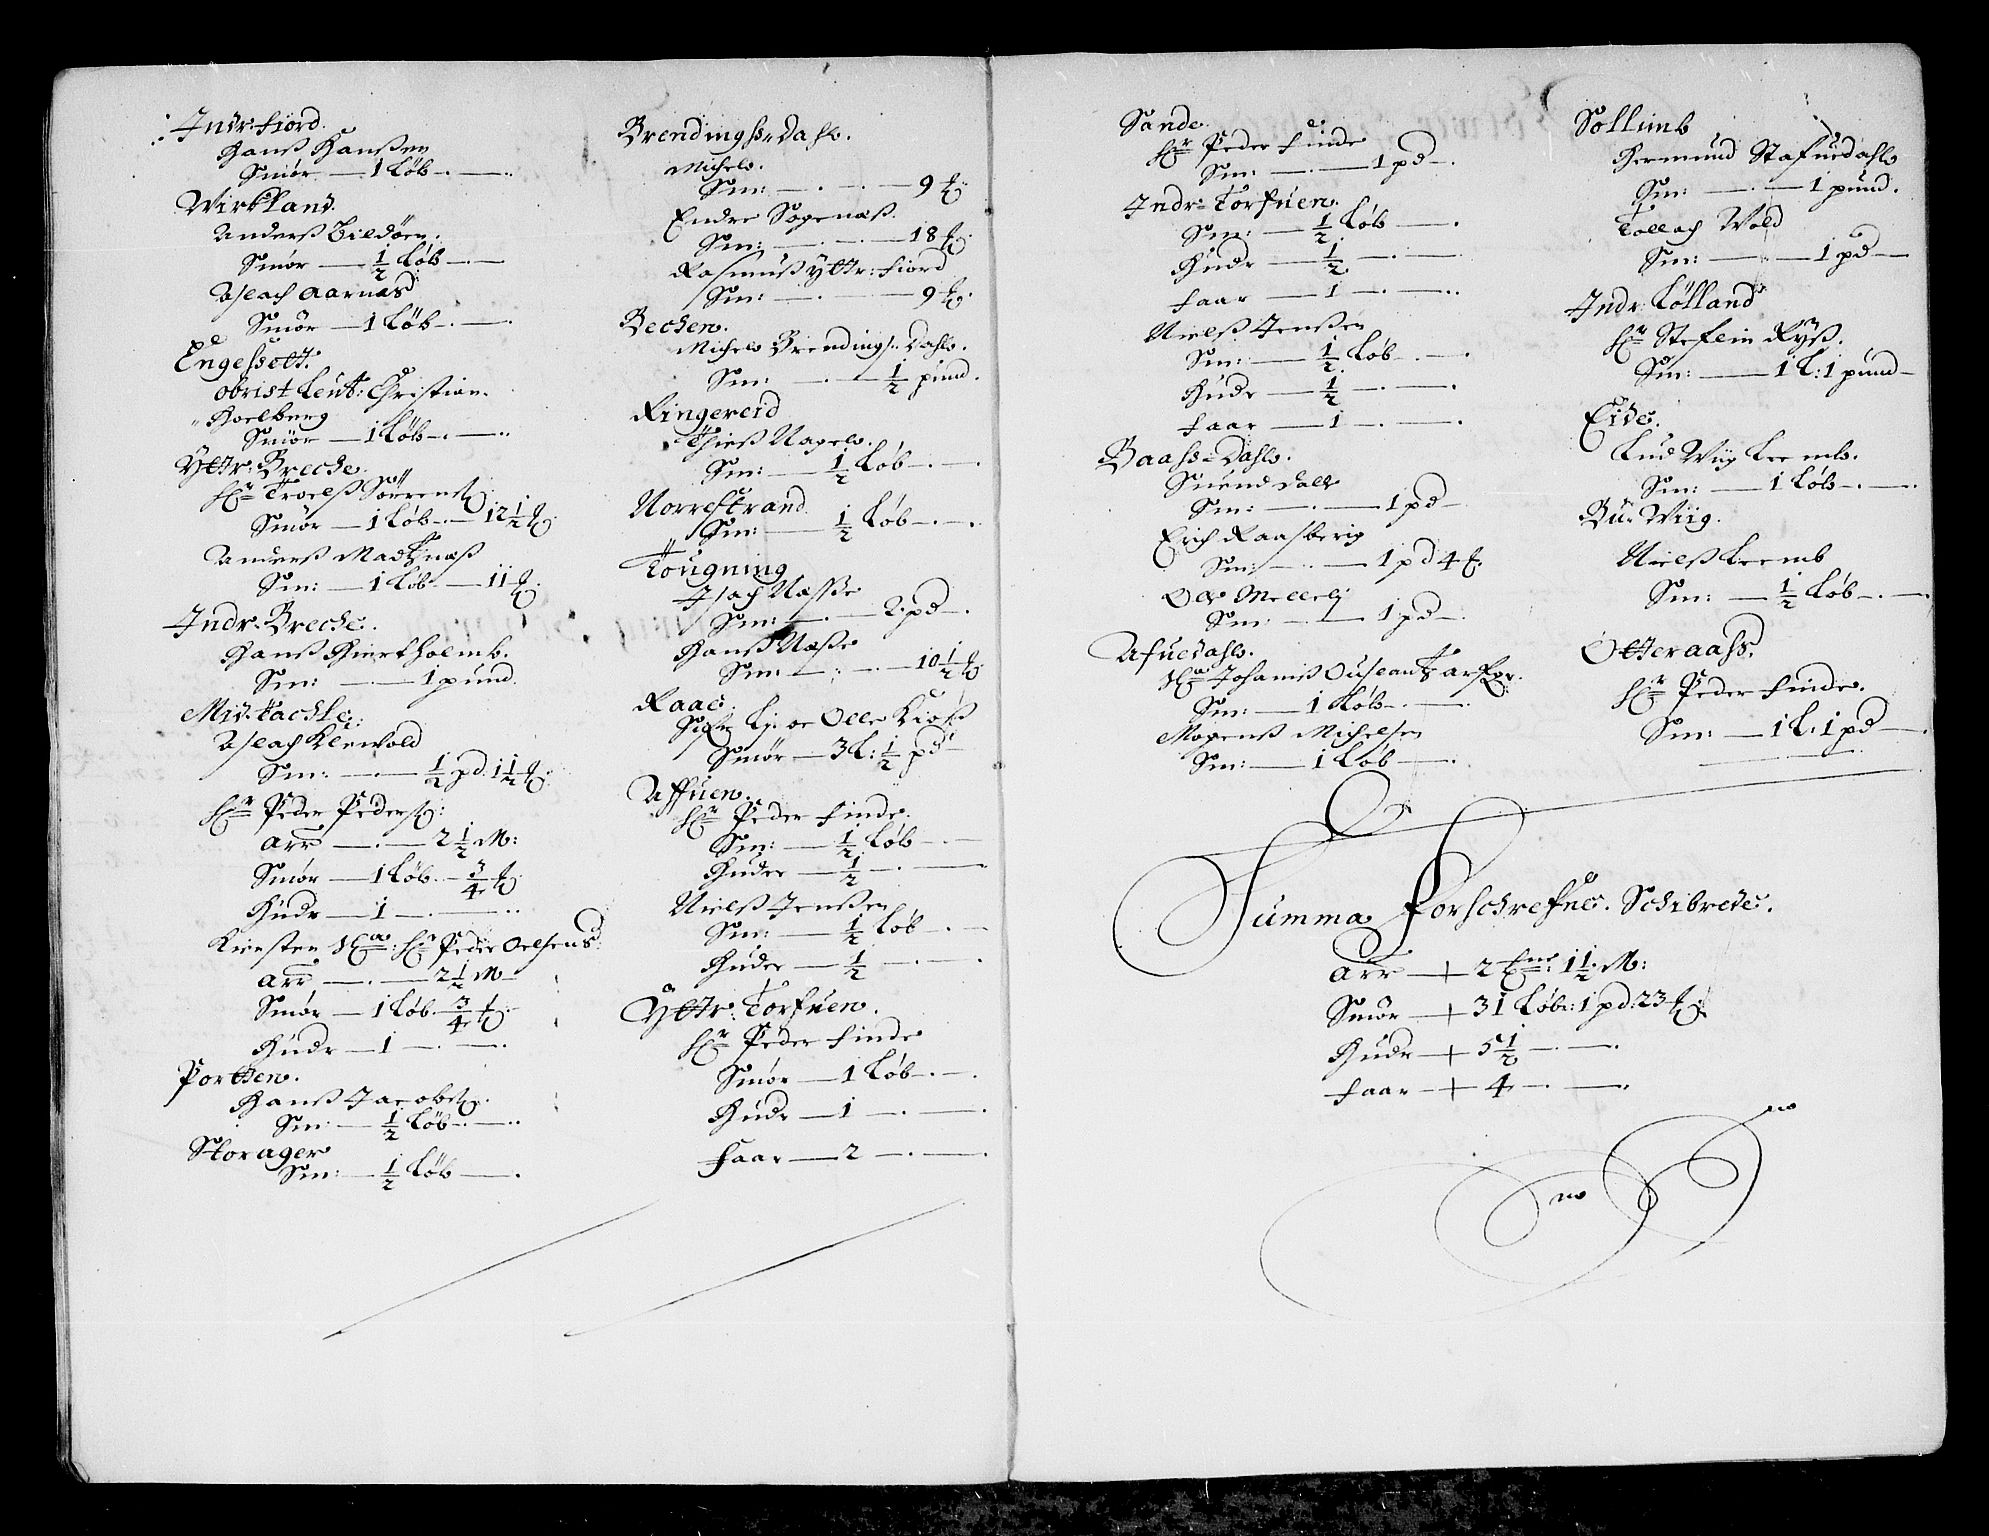 Indr fiord.
Hanß Hanßen
Smör — 1 Löb —
Wirkland.
Anderß Bildöen.
Smör — 1/2 Löb —
Aslach Aarnæs
Smör — 1 Löb —
Engeßett.
Obrist Leut: Christian
Hoelberg
Smör — 1 Löb —
Yttr: Breche.
Hr Troelß Sörrens:
Smör — 1 Löb — 12 1/2 ℔.
Anderß Madtznæß
Sm: — 1 Löb — 11 ℔.
Indr. Breche.
Hanß Hiertholmb.
Sm: — 1 pund.
Midtachle:
Aslach Klewold
Sm: — 1/2 pd. 1 1/2 ℔.
Hr Peder Peders:
Arr — 2 1/2 M:
Smör — 1 Löb. 3/4 ℔.
Hudr — 1 —
Kiersten Hr Peder Oelsens
Arr — 2 1/2 M
Smör — 1 Löb. 3/4 ℔.
Hudr — 1 —
Portten.
Hanß Jacobs:
Sm: — 1/2 Löb —
Storager
Sm: — 1/2 Löb —
Brendingß=Dahl.
Michel.
Sm: — 9 ℔.
Endre Sogenæß.
Sm: — 18 ℔.
Rasmuß Yttr: fiord
Sm: — 9 ℔.
Bechen.
Michel Brendings: Dahl.
Sm: — 1/2 pund.
Ringereid
Thieß Nagel.
Sm: — 1/2 Löb —
Norrestrand
Sm: — 1/2 Löb —
Tougning
Isach Næsse
Sm: — 2 pd —
Hanß Næße
Sm: — 10 1/2 ℔
Raae.
Olle Kioß
Smör — 3 L: 1/2 pd
Affuen.
Hr Peder Finde.
Sm: — 1/2 Löb —
Huder — 1/2 —
Nielß Jenßen
Sm: — 1/2 Löb —
Huder — 1/2 —
Yttr: Torfuen.
Hr Peder Finde
Smör — 1 Löb —
Hudr — 1 —
Faar — 2 —
Sande.
Hr Peder Finde
Sm: — 1 pd —
Indr: Torfuen.
Sm: — 1/2 Löb —
Hudr — 1/2 —
Faar — 1 —
Nielß Jenßen
Sm: — 1/2 Löb —
Hudr — 1/2 —
Faar — 1 —
Baaß=Dahl.
Suend Dall
Sm: — 1 pd —
Erich Raasberig
Sm: — 1 pd 4 ℔.
Ole Mellelj
Sm: — 1 pd —
Afuedahl.
Johanß
Sm: — 1 Löb —
Mogenß Michelsen
Sm: — 1 Löb —
Sollimb
Hermund Stafuedahl
Sm: — 1 pund.
Tollach Wold
Sm: — 1 pd —
Indr Lölland
Hr Steffein Ryß.
Sm: — 1 L: 1 pund —
Eide.
Ludwiig Leemb.
Sm: — 1 Löb —
Bu=Wiig.
Nielß Leemb
Sm: — 1/2 Löb —
Otteraaß.
Hr Peder Finde.
Sm: — 1 L: 1 pd —
Summa Forschrefne. Schibrede.
Arr — 2 1 1/2 M:
Smör — 31 Löb: 1 pd: 23 ℔
Hudr — 5 1/2 —
Faar — 4 —